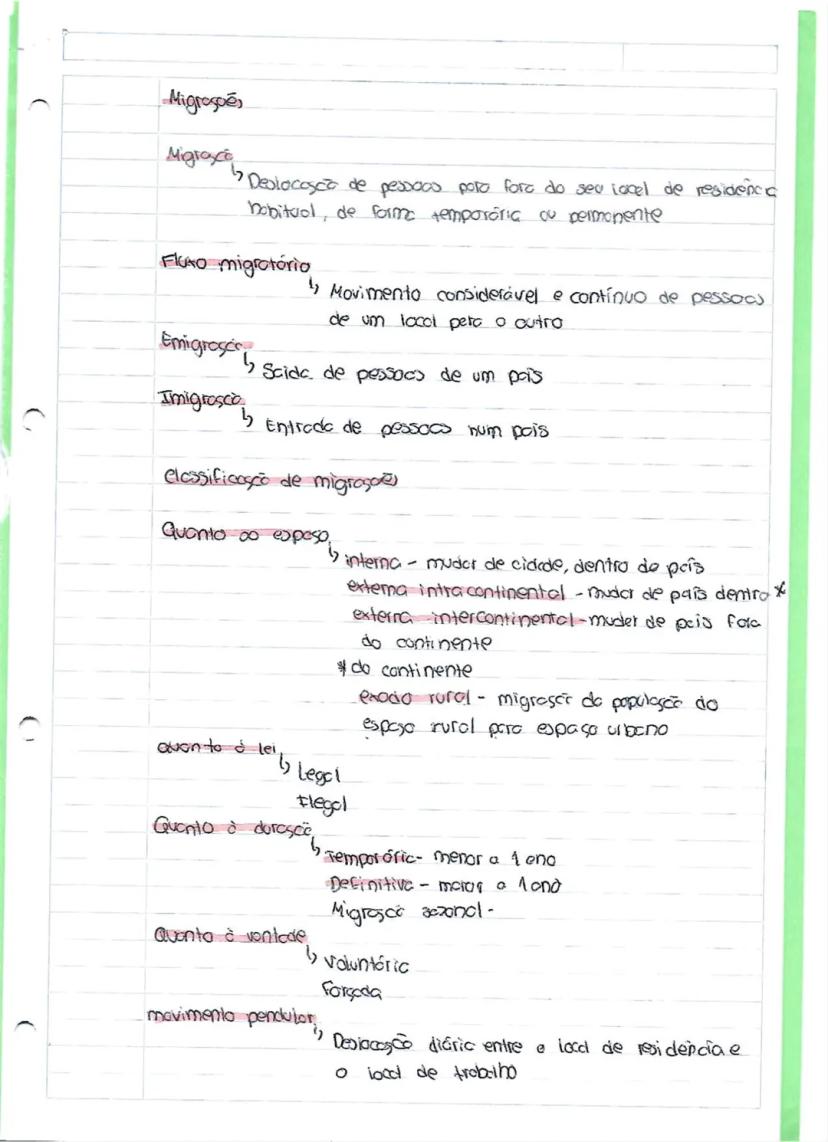 Migrações
Migração
↳ Deslocação de pessoas para fora do seu local de residência
habitual, de forma temporária ou permanente
Fluxo migratório
↳ Movimento considerável e contínuo de pessoas
de um local para o outro
Emigração
↳ Saida de pessoas de um país
Imigração
↳ Entrada de pessoas num país
Classificação de migrações
Quanto ao espaço
↳ interna - mudar de cidade, dentro do país
externa intracontinental - mudar de país dentro *
externa intercontinental - mudar de país fora
do continente
* do continente
exodo rural - migração da população do
espaço rural para espaço urbano
Quanto à lei
↳ Legal
Ilegal
Quanto à duração
↳ Temporária - menor a 1 ano
Definitiva - maior a 1 ano
Migração sazonal -
Quanto à vontade
↳ Voluntária
Forçada
movimento pendular
↳ Deslocação diária entre o local de residência e
o local de trabalho